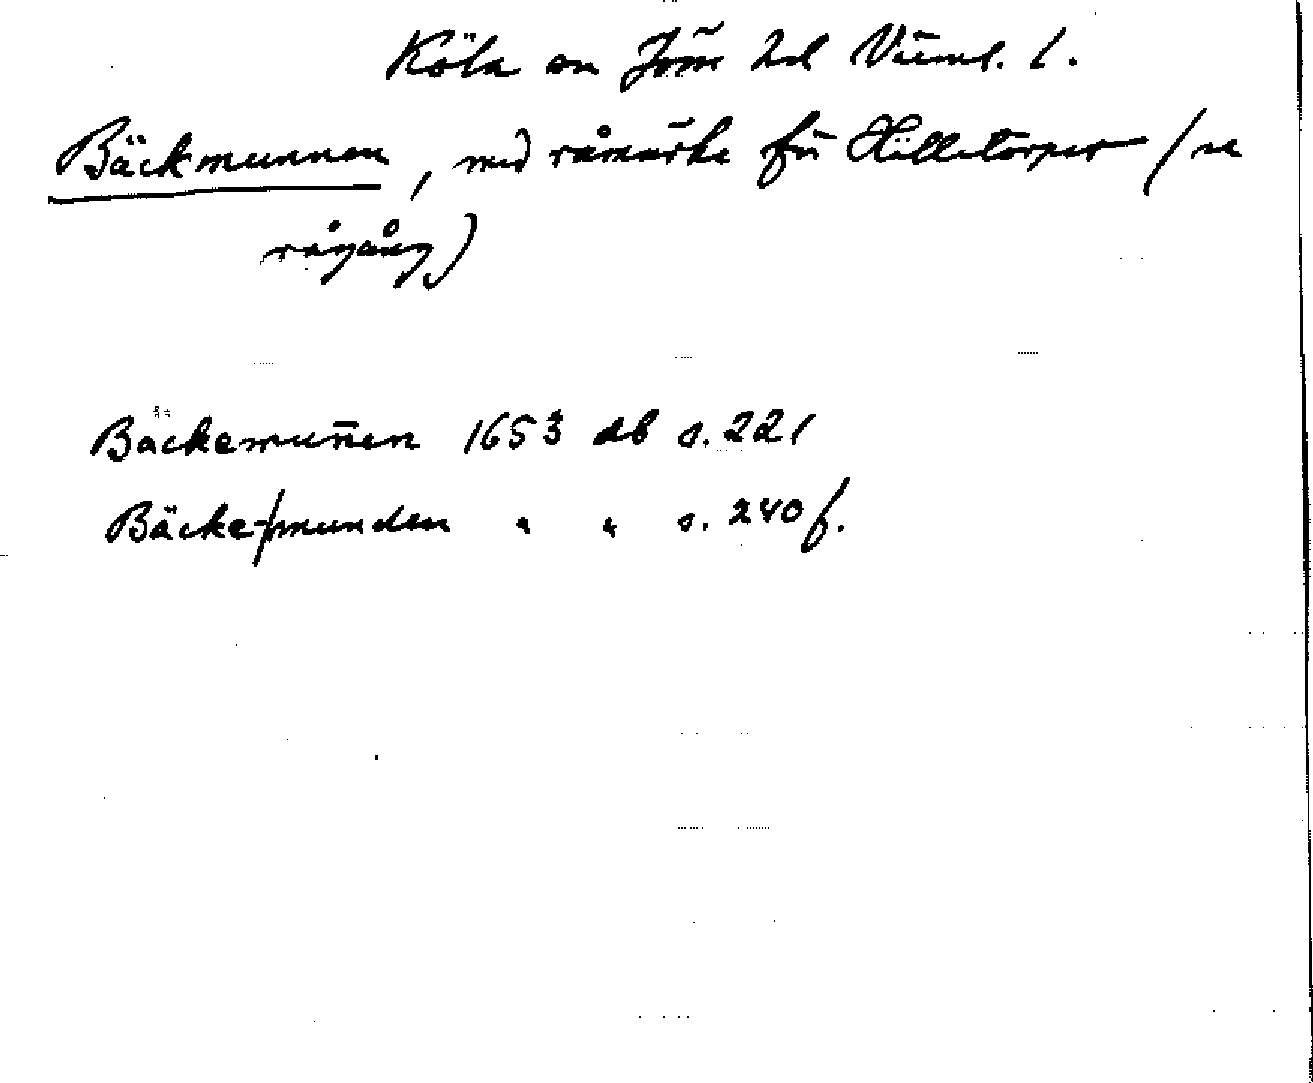 Köla sn Jösse hd Värml. l.
Bäckmunnen, med råmärke för Hilletorpet (se
rågång)
Bäckemun̄en 1653 db s. 221
Bäcke/munden " " s. 240 f.